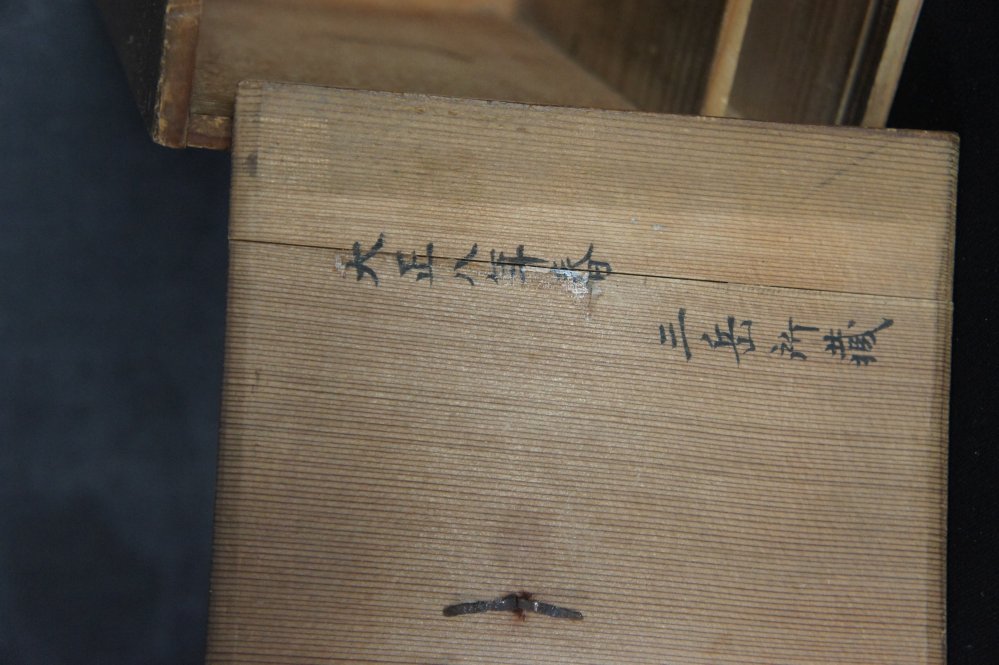 大正八年春
三岳所蔵